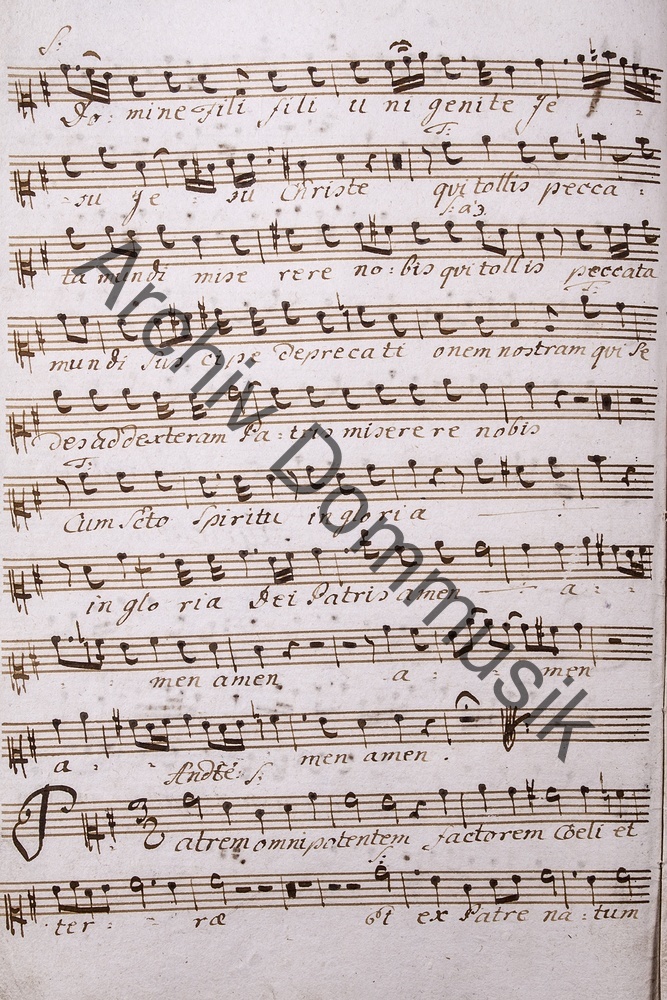 S:
Do: mine Fili fili u ni genite Je
T:
su Je su Christe qui tollis pecca :
S: a 3.
ta mundi mise rere no: bis qui tollis peccata
T:
mundi sus cipe deprecati onem nostram qui se
des ad dexteram Pa: tris miserere nobis
T:
Cum Scto Spiritu in gloria
in glo ria Dei Patris amen a : :
men amen a : : men
a : : men amen .
Andte: S:
Patrem omnipotentem factorem Coeli et
S:
ter : ræ Et ex Patre na: tum
Archiv Dommusik